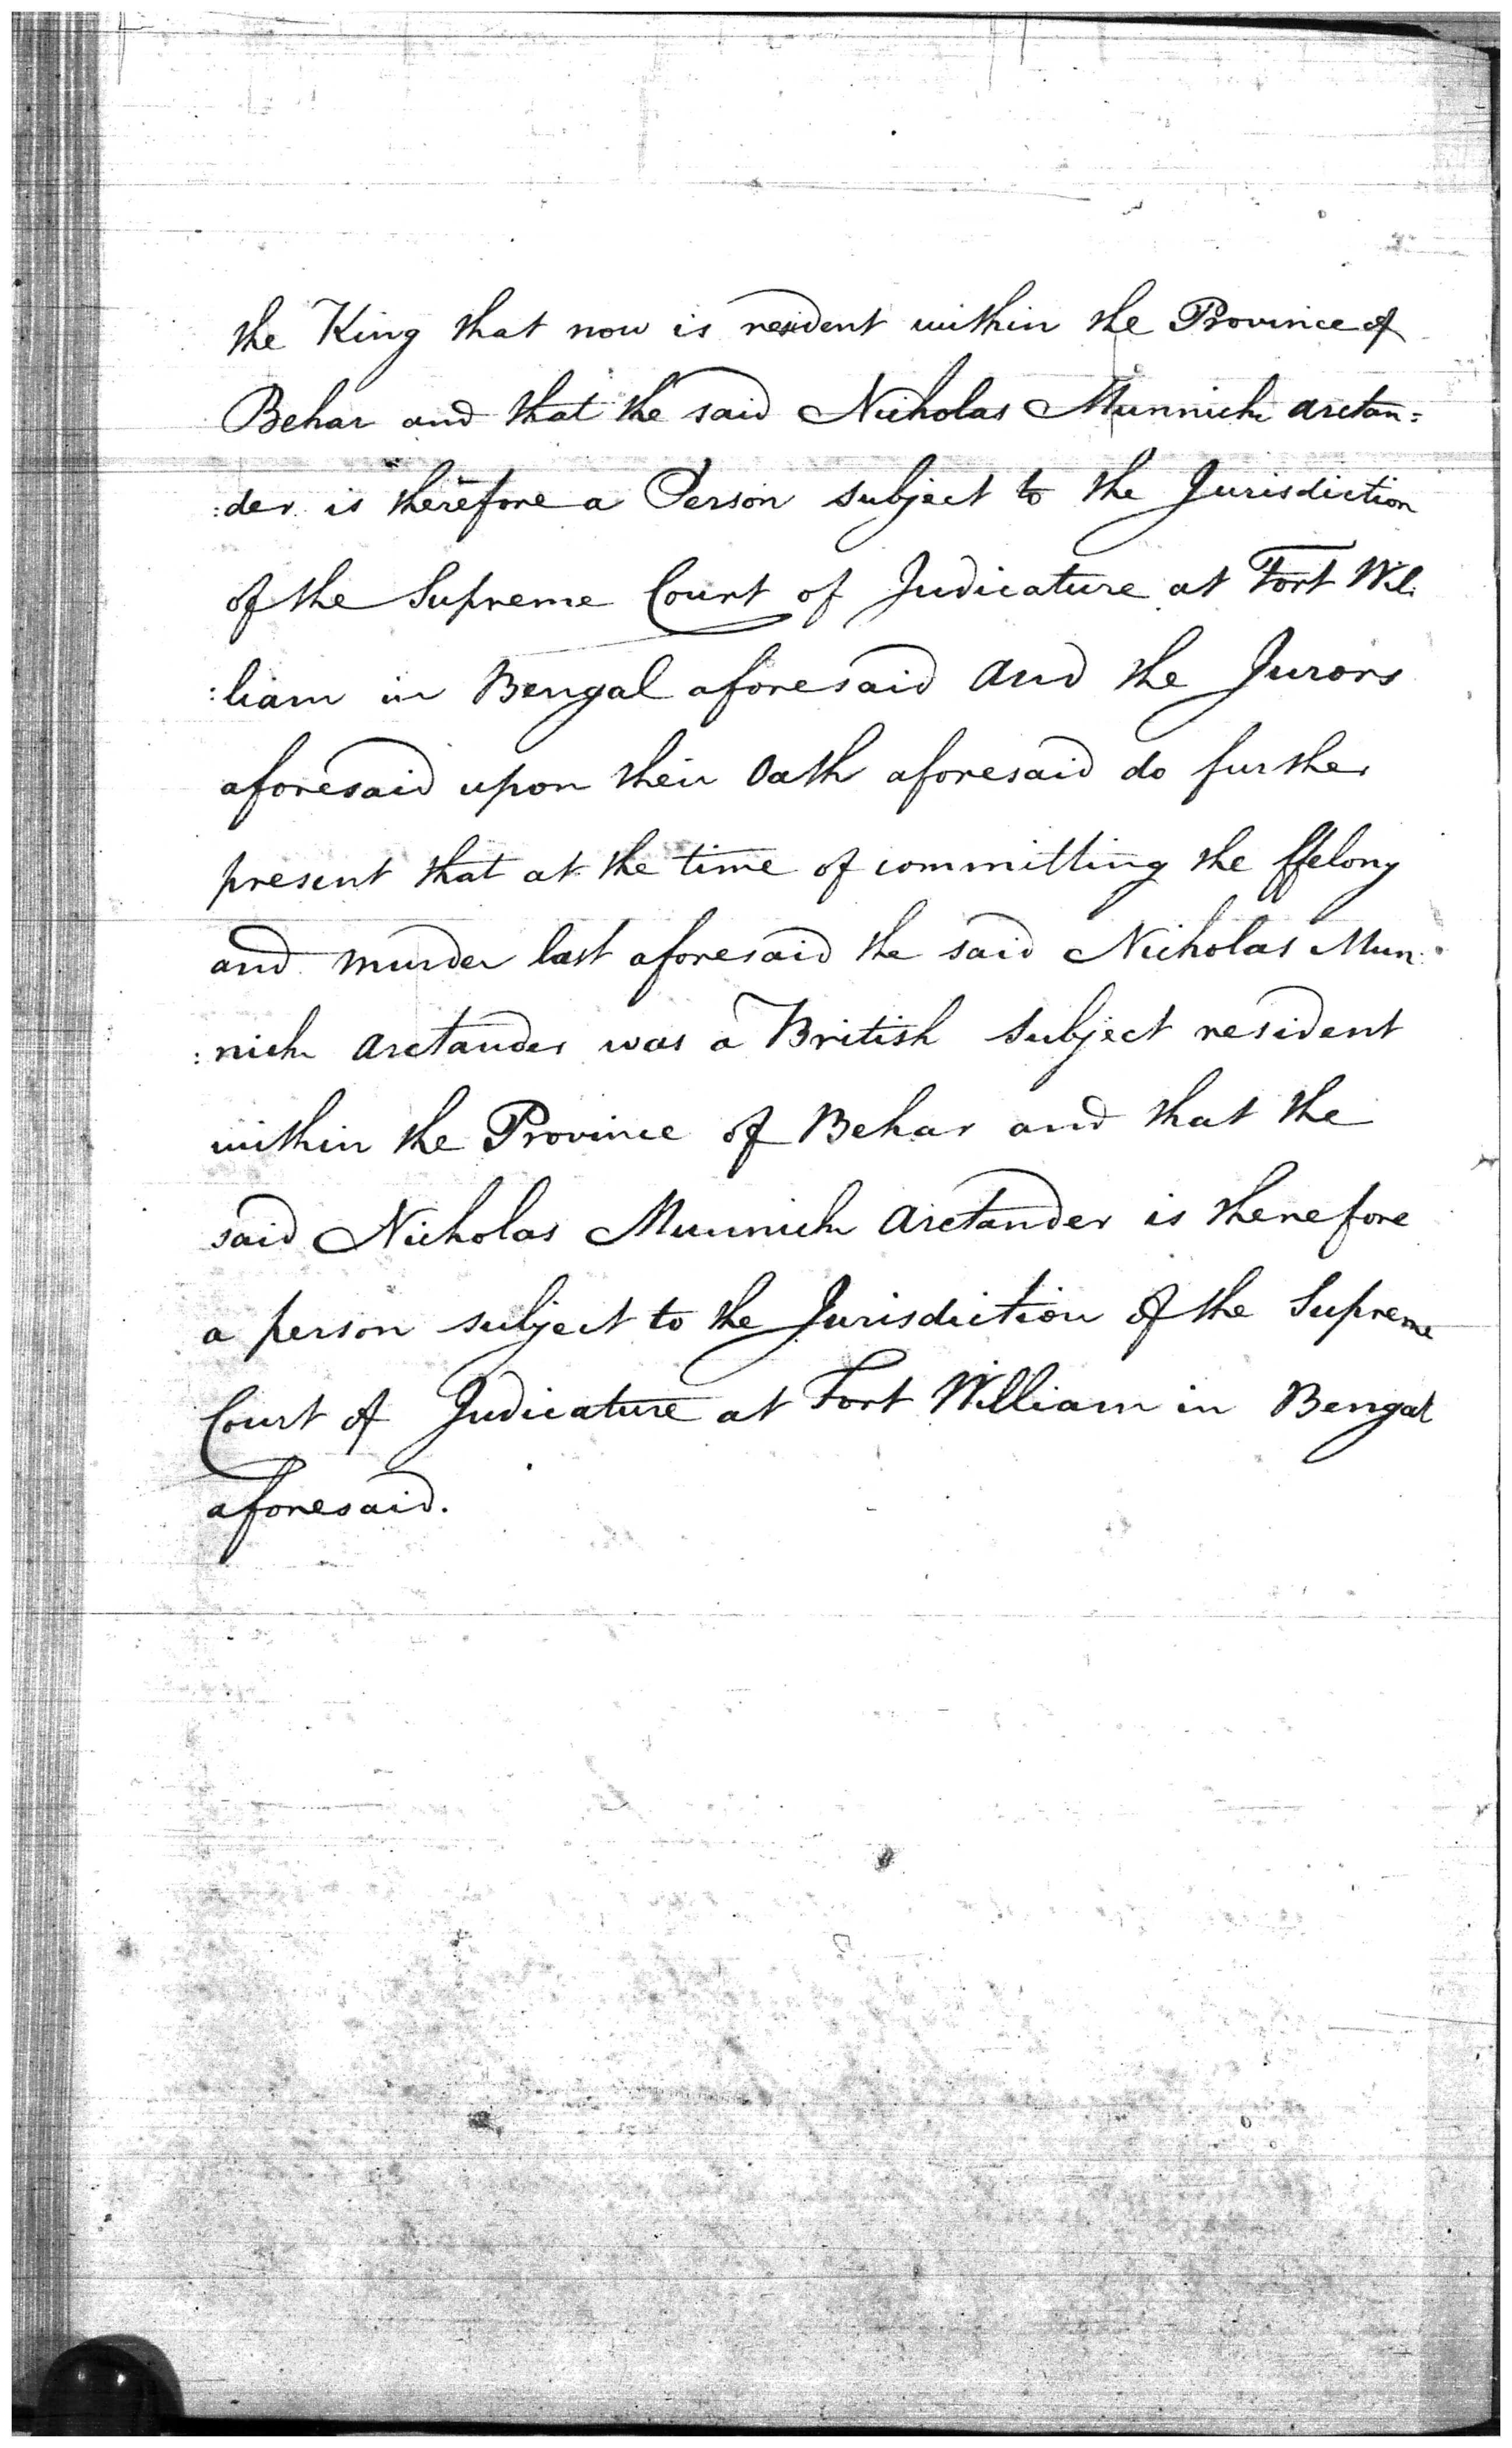 the King that now is resident within the Province of
Behar and that the said Nicholas Munnich Arctan=
:der is therefore a Person subject to the Jurisdiction
of the Supreme Court of Judicature at Fort Wil:
:liam in Bengal aforesaid And the Jurors
aforesaid upon their Oath aforesaid do further
present that at the time of committing the ffelony
and murder last aforesaid the said Nicholas Mun:
:nich Arctander was a British Subject resident
within the Province of Behar and that the
said Nicholas Munnich Arctander is therefore
a person subject to the Jurisdiction of the Supreme
Court of Judicature at Fort William in Bengal
aforesaid.